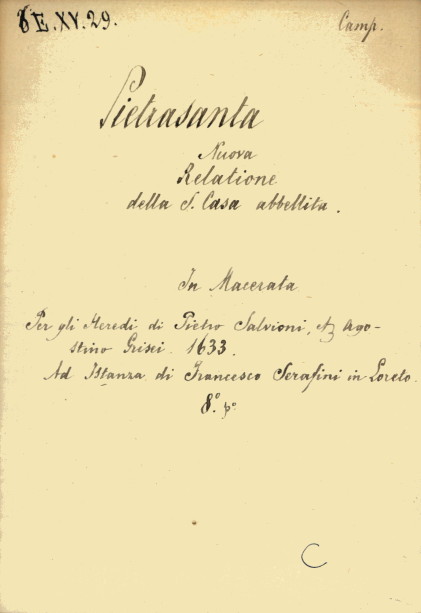 6 E. XV. 29.
Camp.
Pietrasanta
Nuova
Relatione
della S. Casa abbellita.
In Macerata
Per gli Heredi di Pietro Salvioni, & Ago-
stino Grisei. 1633.
Ad Istanza di Francesco Serafini in Loreto.
8.° p.°
C